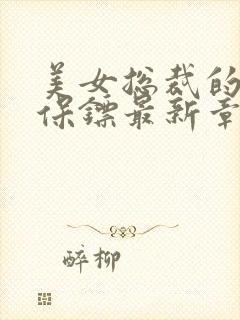 美女总裁的
保镖最新章
醉柳